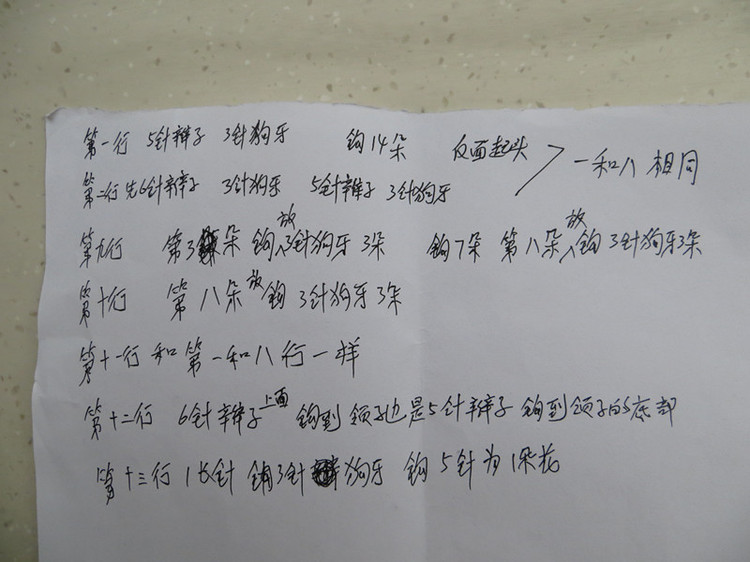 第一行 5针辫子 3针狗牙 钩14朵 反面起头 > 一和八 相同
第二行 先6针辫子 3针狗牙 5针辫子 3针狗牙
第九行 第3朵 钩放3针狗牙 3朵 钩7朵 第八朵放钩 3针狗牙3朵
第十行 第八朵放钩 3针狗牙3朵
第十一行 和第一和八行一样
第十二行 6针辫子上面 钩到领子也是5针辫子 钩到领子的底部
第十三行 1长针 钩3针狗牙 钩5针为1朵花